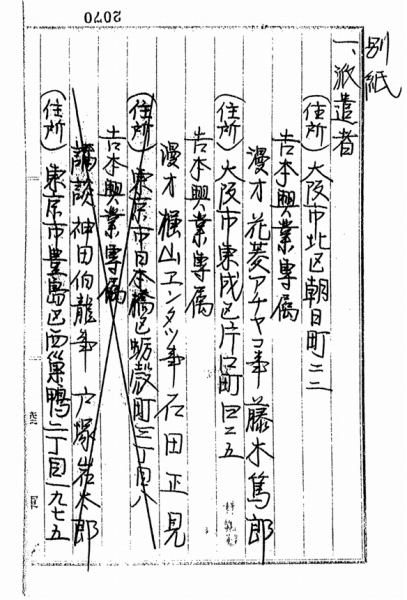 2070
別紙
一、派遣者
(住所)大阪市北区朝日町二二
吉本興業専属
漫才 花菱アチャコ事 藤木篤郎
(住所)大阪市東成区片江町四二五
吉本興業専属
漫才 横山エンタツ事 石田正見
(住所)東京市日本橋区蛎殻町三丁目八
吉本興業専属
講談 神田伯龍事 戸塚岩太郎
(住所)東京市豊島区西巣鴨二丁目一九七五